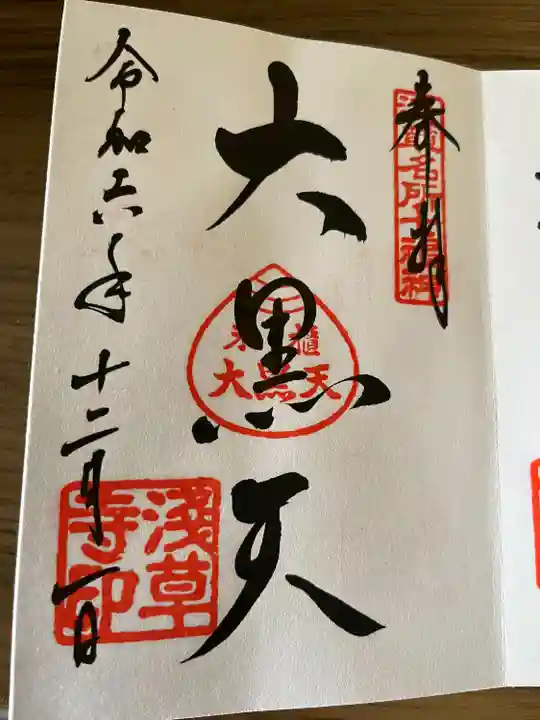 奉拝
浅草名所七福神
大黒天
米櫃
大黒天
令和六年十二月一日
浅草
寺印